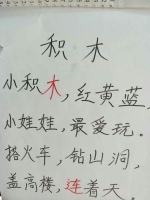 积木
小积木，红黄蓝，
小娃娃，最爱玩．
搭火车，钻山洞，
盖高楼，连着天。